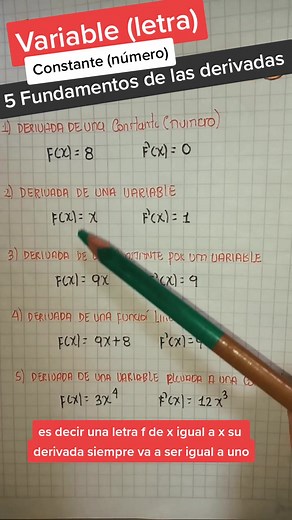 Variable (letra)
Constante (número)
5 Fundamentos de las derivadas
1) DERIVADA DE UNA Constante (numero)
F(x) = 8 F'(x) = 0
2) DERIVADA DE UNA VARIABLE
F(x) = x F'(x) = 1
3) DERIVADA DE POR UM VARIABLE
F(x) = 9x F'(x) = 9
4) DERIVADA DE UNA FUNCIÓ
F(x) = 9x + 8 F'(x) =
5) DERIVADA DE UNA VARIABLE ELEVADA A UNA
F(x) = 3x⁴ F'(x) = 12x³
es decir una letra f de x igual a x su
derivada siempre va a ser igual a uno